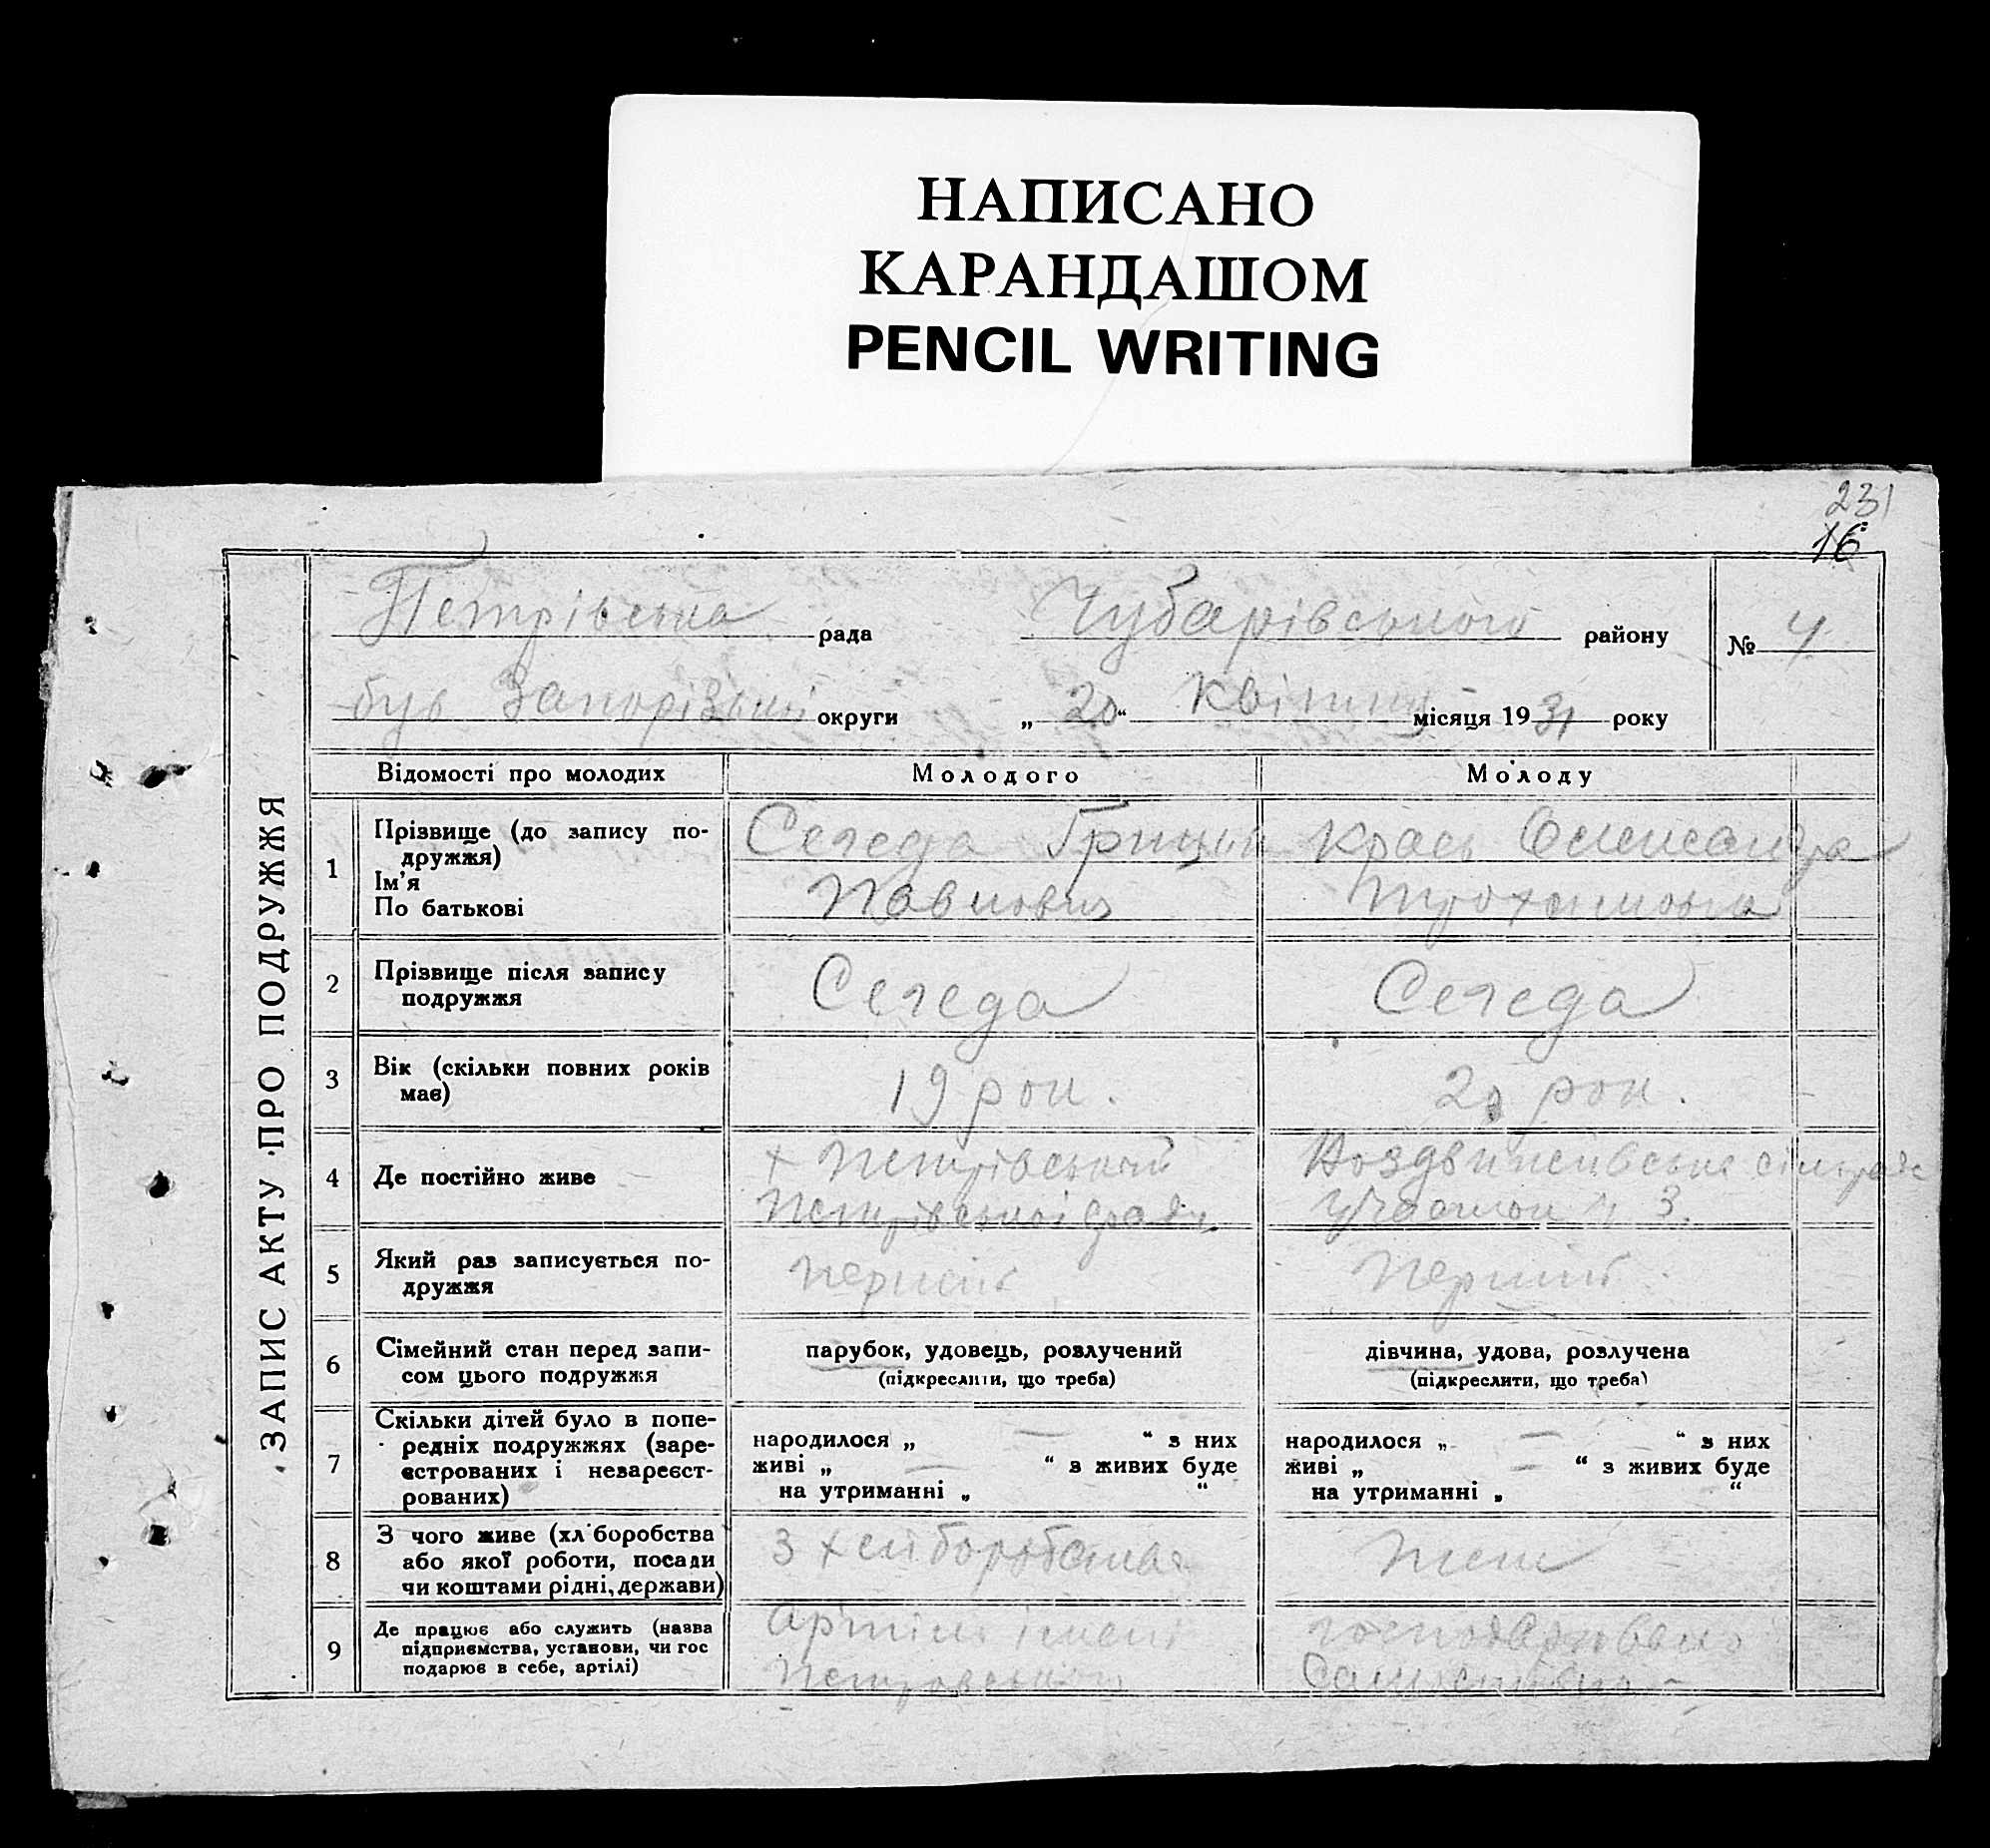 НАПИСАНО
КАРАНДАШОМ
PENCIL WRITING
231
16
ЗАПИС АКТУ ПРО ПОДРУЖЖЯ
Петрівська рада Чубарівського району № 4
був Запорізької округи „ 20 “ Квітня місяця 19 31 року
Відомості про молодих Молодого Молоду
1 Прізвище (до запису по-
дружжя)
Ім'я
По батькові
Середа Грицько
Павлович
Крась Олександра
Трохимовна
2 Прізвище після запису
подружжя
Середа
Середа
3 Вік (скільки повних років
має)
19 рок.
20 рок.
4 Де постійно живе
х Петрівський
Петрівської Сради
Воздвиженівська сільрада
Участок № 3.
5 Який раз записується по-
дружжя
перший
перший
6 Сімейний стан перед запи-
сом цього подружжя
парубок, удовець, розлучений
(підкреслити, що треба)
дівчина, удова, розлучена
(підкреслити, що треба)
7 Скільки дітей було в попе-
редніх подружжях (заре-
єстрованих і незареєст-
рованих)
народилося „ — “ з них
живі „ — “ з живих буде
на утриманні „ “
народилося „ — “ з них
живі „ — “ з живих буде
на утриманні „ “
8 З чого живе (хл боробства
або якої роботи, посади
чи коштами рідні, держави)
З хліборобства
теж
9 Де працює або служить (назва
підприємства, установи, чи гос
подарює в себе, артілі)
артіль імені
Петровського